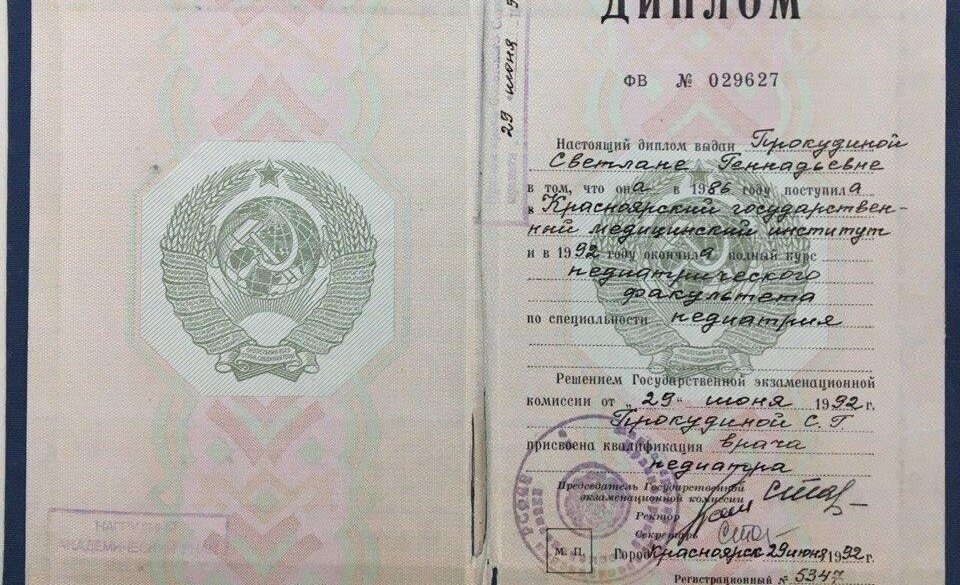 ДИПЛОМ
ФВ № 029627
Настоящий диплом выдан Прокудиной
Светлане Геннадьевне
в том, что она в 1986 году поступила
в Красноярский государствен-
ный медицинский институт
и в 1992 году окончила полный курс
педиатрического
факультета
по специальности педиатрия
Решением Государственной экзаменационной
комиссии от "29" июня 1992 г.
Прокудиной С. Г.
присвоена квалификация врача
педиатра
Председатель Государственной
экзаменационной комиссии
Ректор
Секретарь
М. П. Город Красноярск 29 июня 1992 г.
Регистрационный № 5347
29 июня
РСФСР
АКАДЕМИЧЕСКИЙ